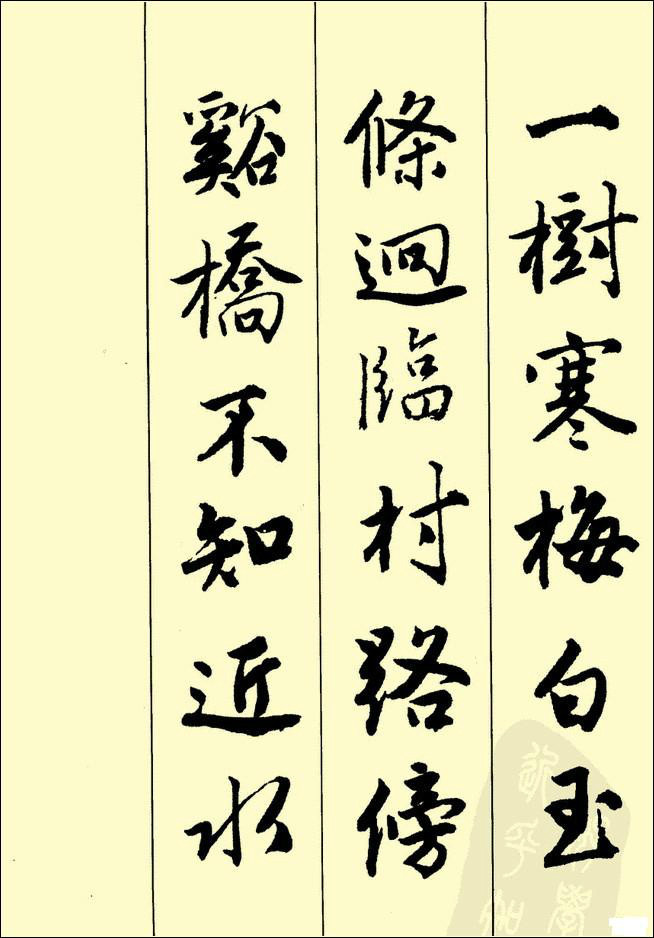 一樹寒梅白玉
條迥臨村路傍
谿橋不知近水